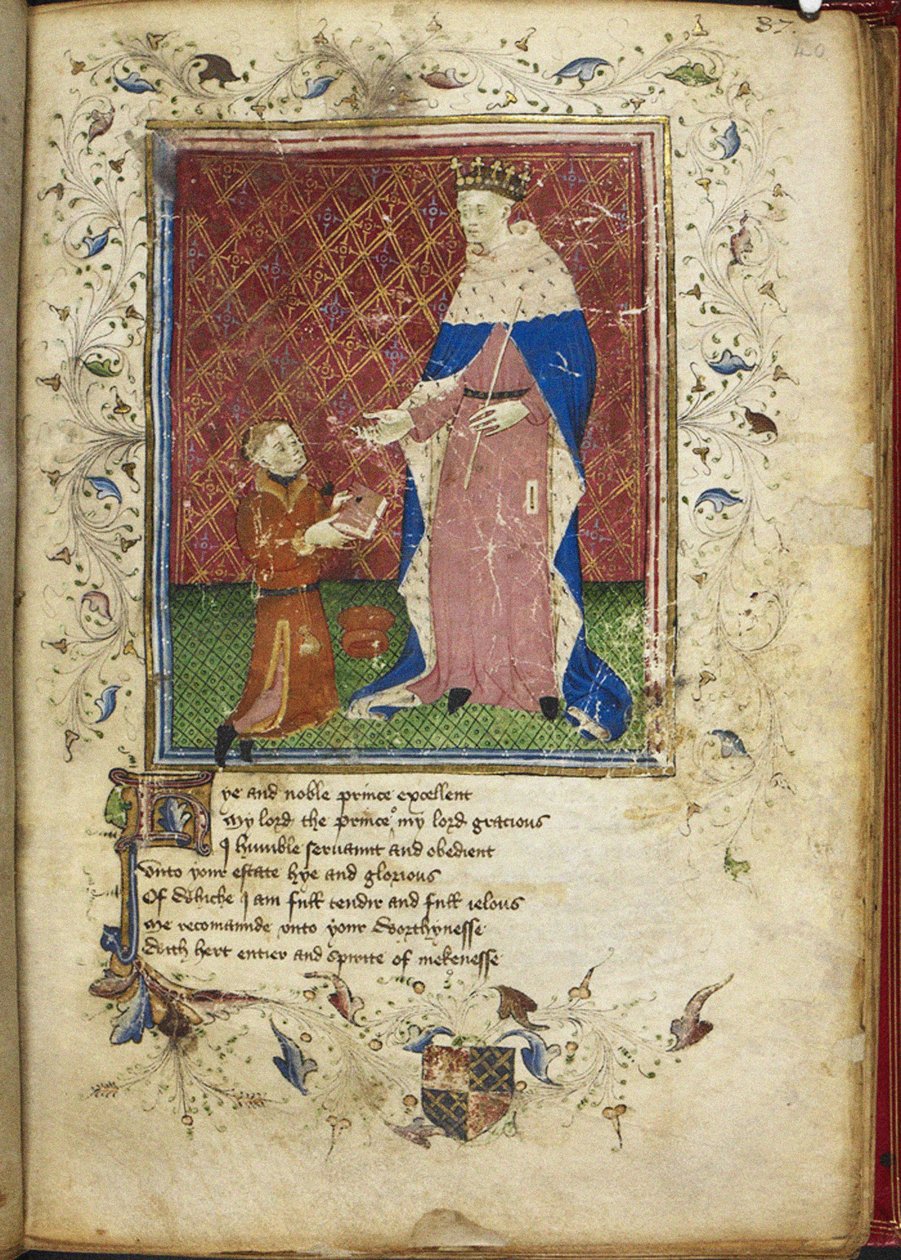 37.
40
Hye and noble prince excellent
My lord the prince o my lord gracious
I humble seruaunt and obedient
Unto your estate hye and glorious
Of whiche I am full tendir and full ielous
Me recomaunde vnto your worthynesse
With hert entier and spirite of mekenesse